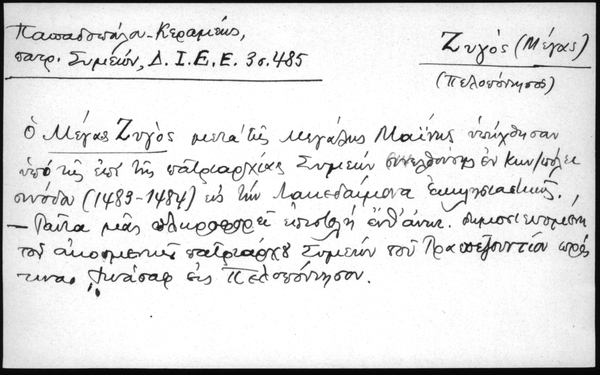 Παπαδοπούλου-Κεραμέως,
πατρ. Συμεών, Δ.Ι.Ε.Ε. 3 σ. 485
Ζυγὸς (Μέγας)
(Πελοπόννησος)
Ὁ Μέγας Ζυγὸς μετὰ τῆς Μεγάλης Μαΐνης ὑπήχθησαν
ὑπὸ τῆς ἐπὶ τῆς πατριαρχίας Συμεὼν συνελθούσης ἐν Κων/πόλει
συνόδου (1483-1484) εἰς τὴν Λακεδαίμονα ἐκκλησιαστικῶς.
— Ταῦτα μᾶς πληροφορεῖ ἐπιστολὴ ἐνθ' ἀνωτ. δημοσιευομένη
τοῦ οἰκουμενικοῦ πατριάρχου Συμεὼν τοῦ Τραπεζουντίου πρός
τινα εἰς Πελοπόννησον.